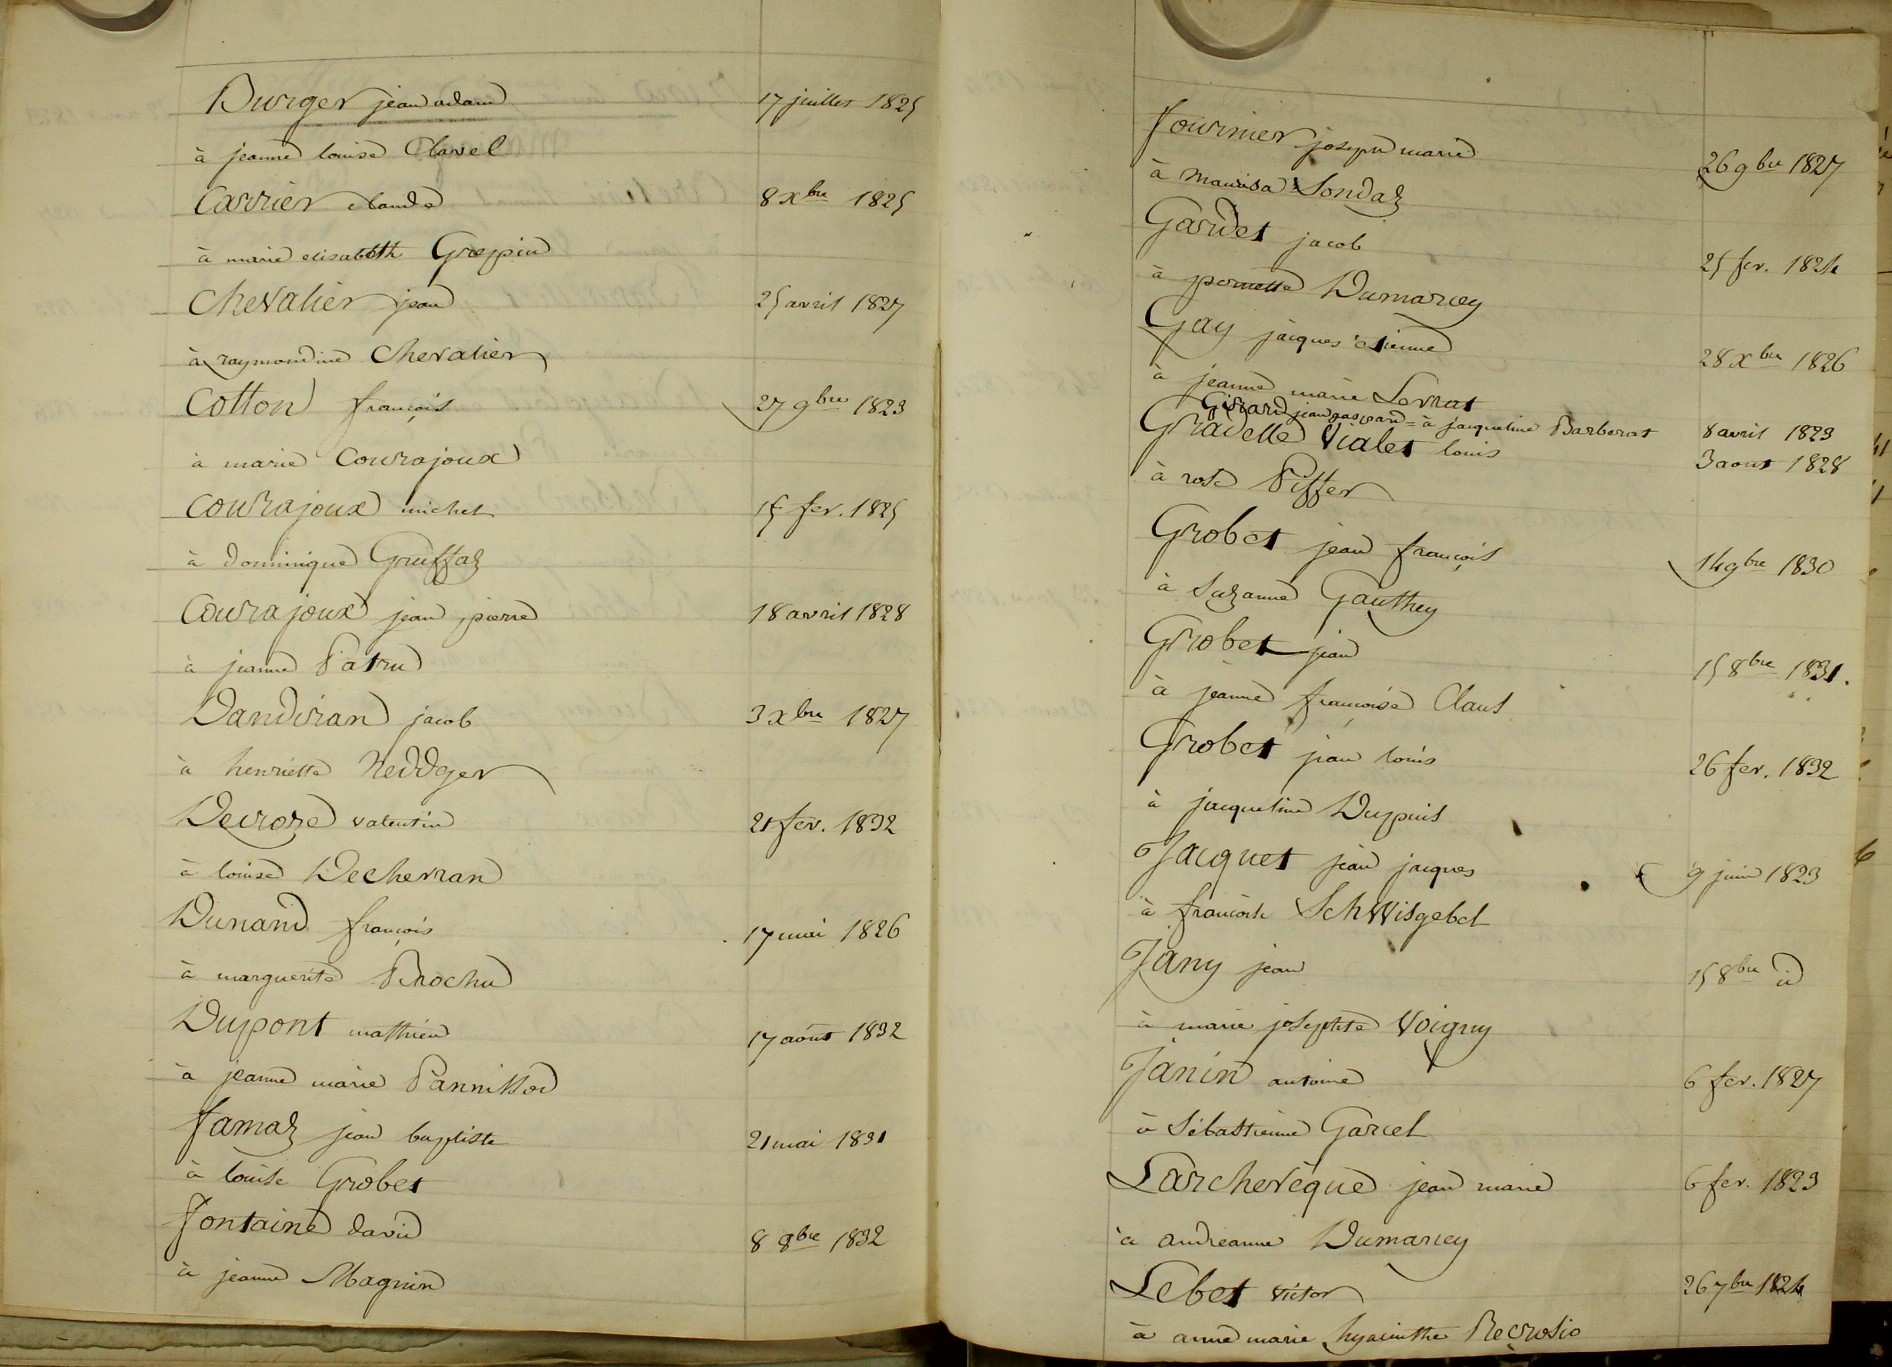 Burger jean adam 17 juillet 1825
à jeanne louise Clavel
Carrier claude 8 Xbre 1825
à marie elisabeth Grepin
Chevalier jean 25 avril 1827
à raymondine Chevalier
Cotton françois 27 9bre 1823
à marie Courajoux
Courajoux michel 15 fev. 1825
à dominique Gruffaz
Courajoux jean pierre 18 avril 1828
à jeanne Patru
Dandiran jacob 3 Xbre 1827
à henriette Neddger
Decroze valentin 21 fev. 1832
à louise Decherran
Dunand françois 17 mai 1826
à marguerite Brochu
Dupont mathieu 17 août 1832
à jeanne marie Pannisson
Famaz jean baptiste 21 mai 1831
à louise Grobet
Fontaine david 8 9bre 1832
à jeanne Magnin
Fournier joseph marie 26 9bre 1827
à Sondaz
Gardet jacob 25 fev. 1824
à pernette Dumarcey
Gay jacques etienne 28 Xbre 1826
à jeanne marie Levrat
Girard jean gaspard = à jacqueline Barberat 8 avril 1823
Gradelle Vialet louis 3 aout 1828
à rose Piffer
Grobet jean françois 14 9bre 1830
à Suzanne Gauthey
Grobet jean 15 8bre 1831.
à jeanne françoise Claus
Grobet jean louis 26 fev. 1832
à jacqueline Dupuis
Jacquet jean jacques 9 juin 1823
à françoise Schwisgebel
Jany jean 15 8bre id
à marie josephte Voigny
Janin antoine 6 fev. 1827
à Sébastienne Garcel
Larchevèque jean marie 6 fev. 1823
à andréanne Dumarcey
Lebet victor 26 7bre 1824
à anne marie hyacinthe Recrosio